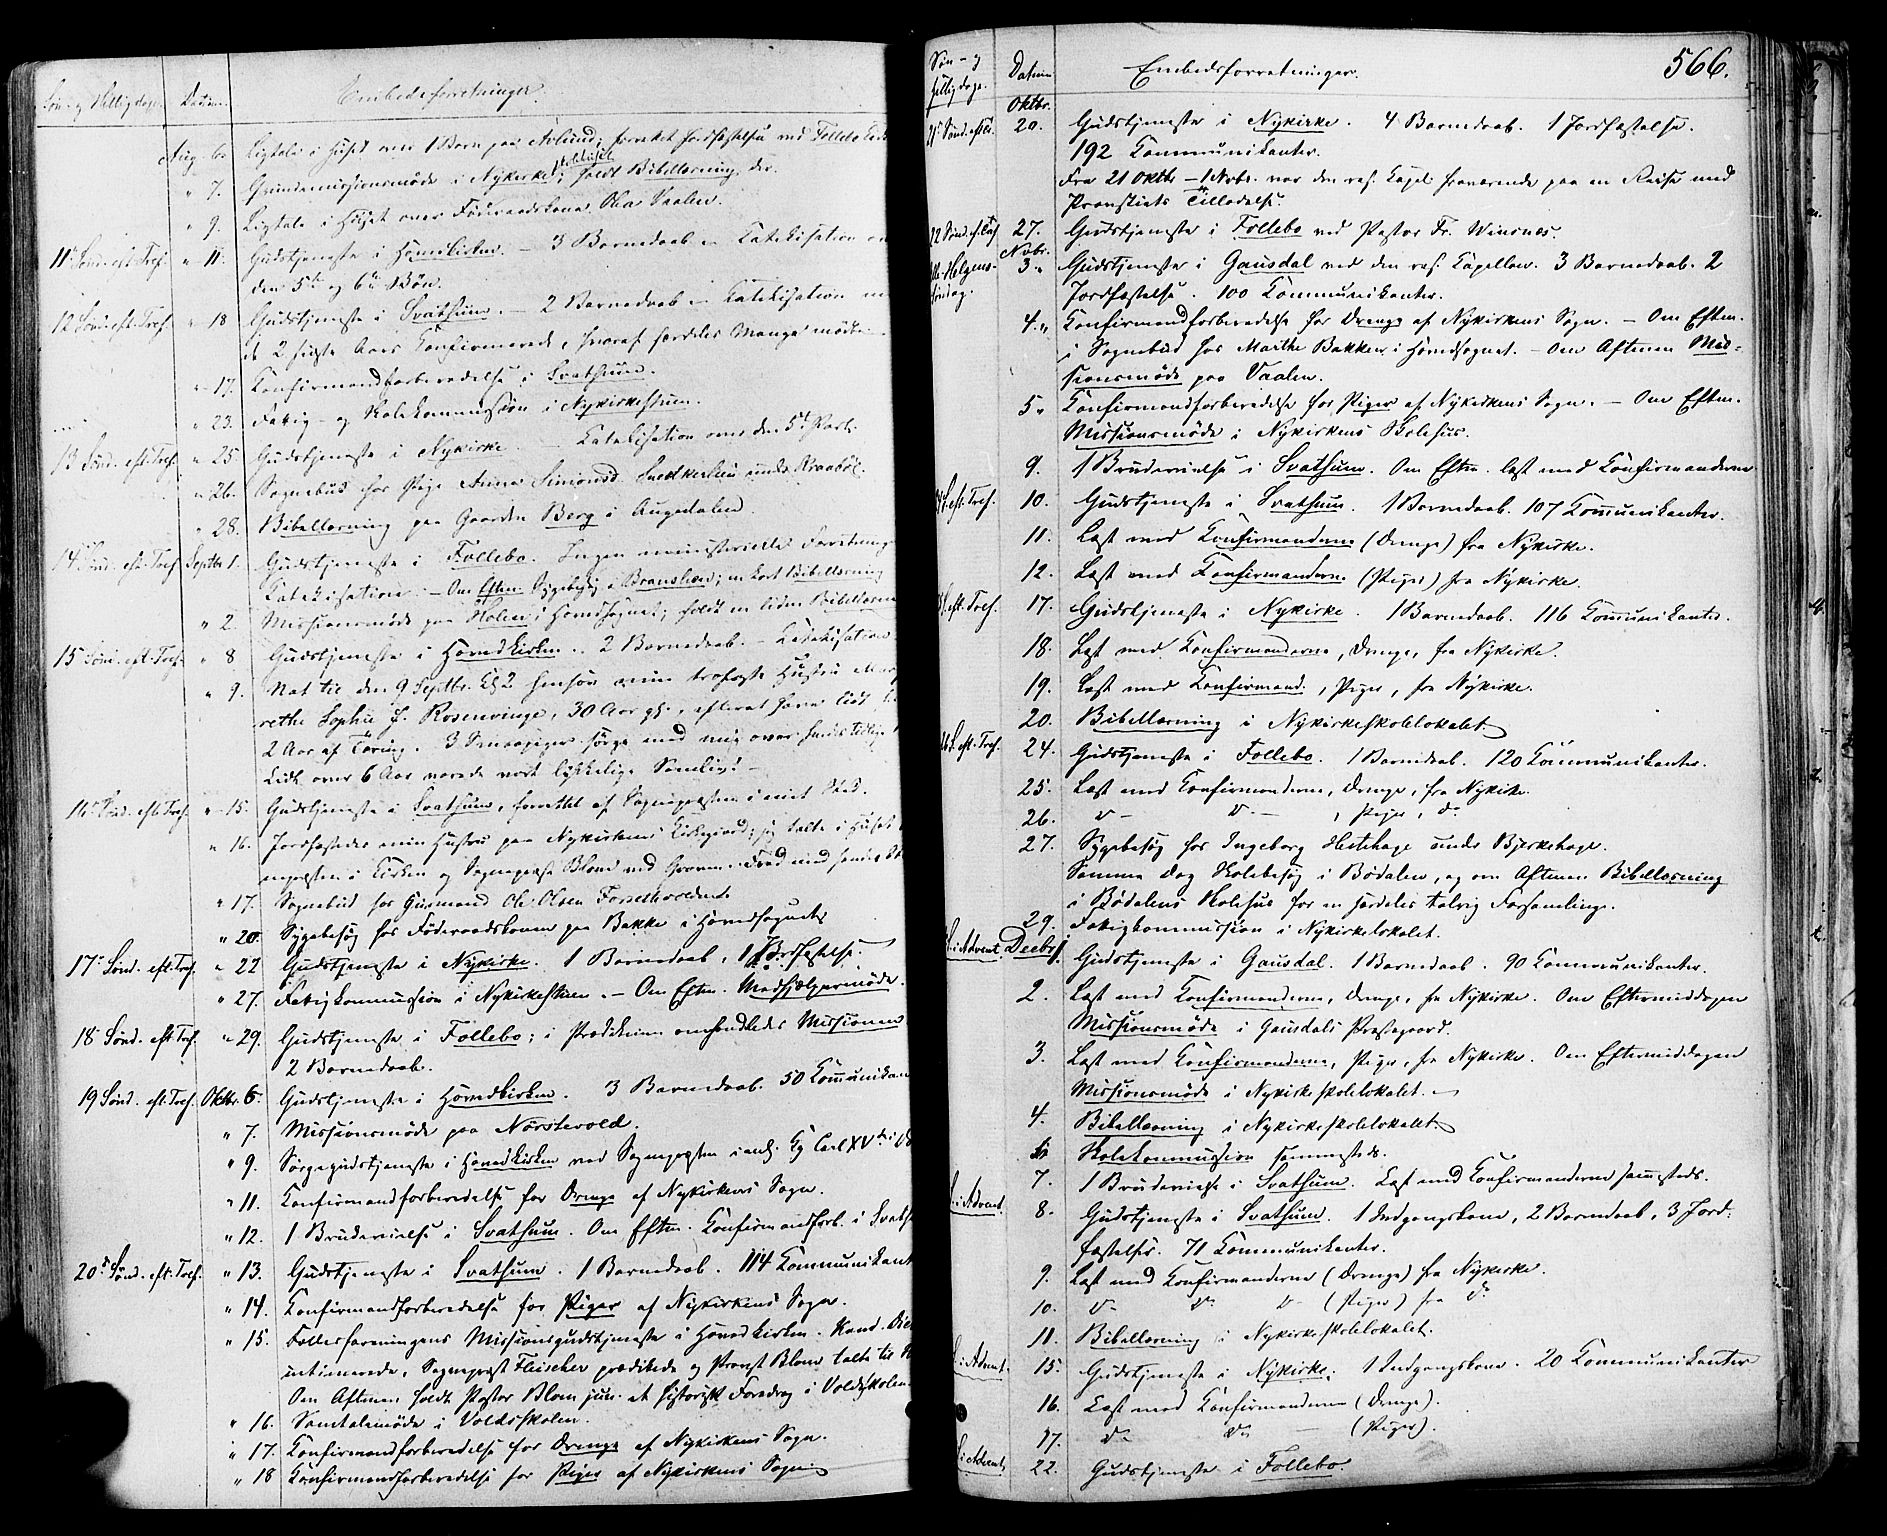 Søn- og Helligdage. Datum. Embedsforretninger.
Aug. 6. Ligtale i Huset over 1 Barn paa forrettet Jordfæstelse ved Follebo
" 7. Grundemissionsmøde i Nykirke Skolehuset; holdt Bibellæsning der.
" 9. Ligtale i Huset over Føderaadskone Vaalen.
11' Sønd. eft. Tref. " 11. Gudstjeneste i Hovedkirken. – 3 Barnedaab – Katekisation
den 5te og 6te Bøn.
12 Sønd. eft. Tref. " 18 Gudstjeneste i Svatsum. – 2 Barnedaab – Katekisation
de 2 sidste Aars Konfirmerede, hvoraf særdeles Mange mødte.
" 17. Konfirmandforberedelse i Svatsum.
" 23. Fattig- og Skolekommission i Nykirkestuen.
13 Sønd. eft. Tref. " 25. Gudstjeneste i Nykirke. – Katekisation over den 5te Part.
" 26. Sognebud hos Pige Anna Simonsd.
" 28. Bibellæsning paa Gaarden Berg i Augedalen.
14 Sønd. eft. Tref. Septbr 1. Gudstjeneste i Follebo. Ingen ministerielle Forretning
Katekisation. – Om Eften. Sygebesøg i en kort Bibellæsning
" 2. Missionsmøde paa Holen i Hovedsognet; holdt en liden Bibellæsn
15 Sønd. eft. Tref. " 8 Gudstjeneste i Hovedkirken. 2 Barnedaab. – Katekisation
" 9. Nat til den 9 Septbr. Kl 2 hensov min trofaste Hustru Marg
rethe Sophie f. Rosenvinge, 30 Aar gl., efterat have lidt
2 Aar af Tæring. 3 Smaapiger sørge med mig over hendes tidlige
Lidt over 6 Aar varede vort lykkelige Samliv! –
16' Sønd. eft. Tref. " 15. Gudstjeneste i Svatsum, forrettet af Sognepræsten i mit Sted.
" 16. Jordfæstedes min Hustru paa Nykirkens Kirkegaard; jeg talte i Huset
nepræsten i Kirken og Sognepræst Blom ved Graven.
" 17. Sognebud hos Huusmand Ole Olsen
" 20. Sygebesøg hos Føderaadskonen paa Bakke i Hovedsognet.
17' Sønd. eft. Tref. " 22 Gudstjeneste i Nykirke. 1 Barnedaab, 1 Jordfæstelse.
" 27. Fattigkommission i Nykirkestuen. – Om Eften. Medhjælpermøde.
18 Sønd. eft. Tref. " 29. Gudstjeneste i Follebo; i Prædikenen omhandledes Missionen
2 Barnedaab.
19 Sønd. eft. Tref. Oktbr. 6. Gudstjeneste i Hovedkirken. 3 Barnedaab. 50 Kommunikan
" 7. Missionsmøde paa Nørstevold.
" 9. Sørgegudstjeneste i Hovedkirken ved Sognepræsten i anl. Kg Carl XVdes
" 11. Konfirmandforberedelse for Drenge af Nykirkens Sogn.
" 12. 1 Brudevielse i Svatsum. Om Eften. Konfirmandforb. i Svats
20' Sønd. eft. Tref. " 13. Gudstjeneste i Svatsum. 1 Barnedaab. 114 Kommunikant
" 14. Konfirmandforberedelse for Piger af Nykirkens Sogn.
" 15. Fællesforeningens Missionsgudstjeneste i Hovedkirken. Kand.
intimerede, Sognepræst Fleischer prædikede og Provst Blom talte til
Om Aftenen holdt Pastor Blom jun. et historisk Foredrag i Voldsskolen
" 16. Samtalemøde i Voldsskolen.
" 17. Konfirmandforberedelse for Drenge af Nykirkens Sogn.
" 18 Konfirmandforberedelse for Piger af Nykirkens Sogn
Søn- og Helligdage. Datum Embedsforretninger. 566.
Oktbr.
21' Sønd. eft. 20. Gudstjeneste i Nykirke. 4 Barnedaab. 1 Jordfæstelse.
192 Kommunikanter.
Fra 21 Oktbr – 1 Nvbr. var den res. Kapel. fraværende paa en Reise med
Provstiets Tilladelse.
22 Sønd. ef. 27. Gudstjeneste i Follebo ved Pastor Fr. Winsnes.
Nvbr.
Alle Helgens Søndag. 3 " Gudstjeneste i Gausdal ved den res. Capellan. 3 Barnedaab. 2
Jordfæstelse. 100 Kommunikanter.
4 " Konfirmandforberedelse for Drenge af Nykirkens Sogn. – Om Eften.
i Sognebud hos Marthe Bakken i Hovedsognet. – Om Aftenen Mis-
sionsmøde paa Vaalen.
5 " Konfirmandforberedelse for Piger af Nykirkens Sogn. – Om Eften.
Missionsmøde i Nykirkens Skolehus.
9. 1 Brudevielse i Svatsum. Om Eften. læst med Konfirmanderne
S. eft. Tref. 10. Gudstjeneste i Svatsum. 1 Barnedaab. 107 Kommunikanter.
11. Læst med Konfirmanderne (Drenge) fra Nykirke.
12. Læst med Konfirmanderne (Piger) fra Nykirke.
S. eft. Tref. 17. Gudstjeneste i Nykirke. 1 Barnedaab. 116 Kommunikanter.
18. Læst med Konfirmanderne, Drenge, fra Nykirke.
19. Læst med Konfirmand., Piger, fra Nykirke.
20. Bibellæsning i Nykirkeskolelokalet.
S. eft. Tref. 24. Gudstjeneste i Follebo. 1 Barnedaab. 120 Kommunikanter.
25. Læst med Konfirmanderne, Drenge, fra Nykirke.
26. d– d–, Piger, do
27. Sygebesøg hos Ingeborg Hestehage under Bjerkehage.
Samme Dag Skolebesøg i Bødalen, og om Aftenen Bibellæsning
i Bødalens Skolehus for en særdeles talrig Forsamling.
29. Fattigkommission i Nykirkelokalet.
S. i Advent Decbr 1. Gudstjeneste i Gausdal. 1 Barnedaab. 90 Kommunikanter.
2. Læst med Konfirmanderne, Drenge, fra Nykirke. Om Eftermiddagen
Missionsmøde i Gausdals Præstegaard.
3. Læst med Konfirmanderne, Piger, fra Nykirke. Om Eftermiddagen
Missionsmøde i Nykirkeskolelokalet. –
4. Bibellæsning i Nykirkeskolelokalet.
Skolekommission sammesteds.
7. 1 Brudevielse i Svatsum. Læst med Konfirmanderne sammesteds.
S. i Advent. 8. Gudstjeneste i Svatsum. 1 Indgangskone, 2 Barnedaab, 3 Jord-
fæstelser. 71 Kommunikanter.
9. Læst med Konfirmanderne (Drenge) fra Nykirke.
10. do do d– (Piger) fra do
11. Bibellæsning i Nykirkeskolelokalet.
S. i Advent. 15. Gudstjeneste i Nykirke. 1 Indgangskone. 20 Kommunikanter
16. Læst med Konfirmanderne (Drenge).
17. do do – (Piger).
S. i Advent. 22. Gudstjeneste i Follebo.